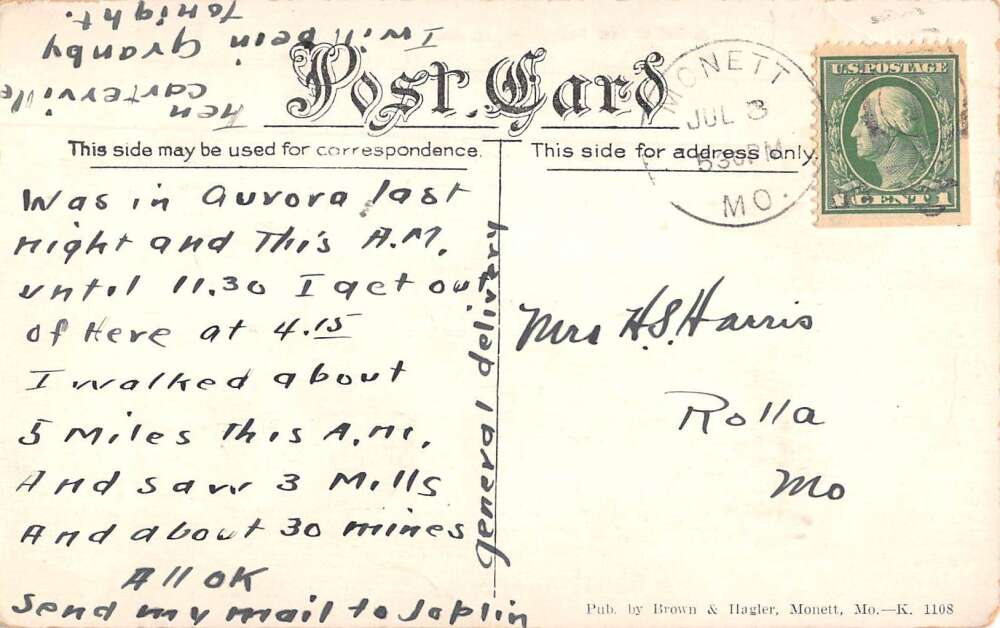 I will bein granby
Tonight.
Then
carterville
Post Card
This side may be used for correspondence.
This side for address only.
MONETT
JUL 3
530 PM
MO.
U.S. POSTAGE
1 CENT 1
Was in Aurora last
night and This A.M.
until 11.30 I get out
of Here at 4.15
I walked about
5 Miles This A.M.
And saw 3 Mills
And about 30 mines
All OK
Send my mail to Joplin
general delivery
Mrs H.S. Harris
Rolla
Mo
Pub. by Brown & Hagler, Monett, Mo.—K. 1108